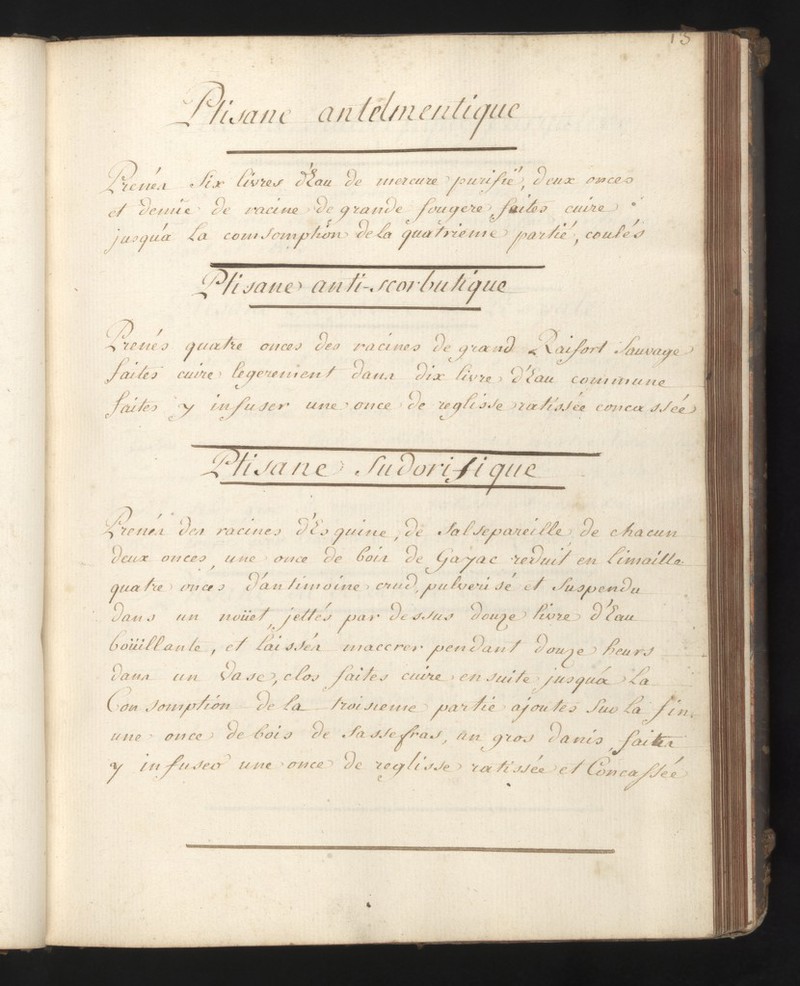 15
Ptisane antelmentique
Prenés Six livres d'Eau de mercure purifié, deux onces
et demie de racine de grande fougere faites cuire
jusqu'a La comsomption de la quatrieme partié, coulés
Ptisane anti-scorbutique
Prenés quatre onces des racines de grand Raifort Sauvage
faites cuire legerement dans dix livre d'Eau commune
faites y infuser une once de reglisse ratissée concassée
Ptisane Sudorifique
Prenés des racines d'Esquine, de Salsepareille de chacun
deux onces, une once de bois de Gayac reduit en Limaille
quatre onces d'antimoine crud, pulverisé et Suspendu
dans un noüet, jettés par dessus douze livre d'Eau
boüillante, et laissés maccrer pendant douze heurs
dans un Vase, clos faites cuire ensuite jusqu'a La
Consomption de la troisieme partié ajoutés Sur la fin
une once de bois de Sassefras, un gros d'anis faites
y infuser une once de reglisse ratissée et Concassée